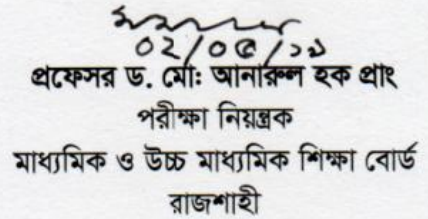 ০২/০৫/১৯
প্রফেসর ড. মো: আনারুল হক প্রাং
পরীক্ষা নিয়ন্ত্রক
মাধ্যমিক ও উচ্চ মাধ্যমিক শিক্ষা বোর্ড
রাজশাহী